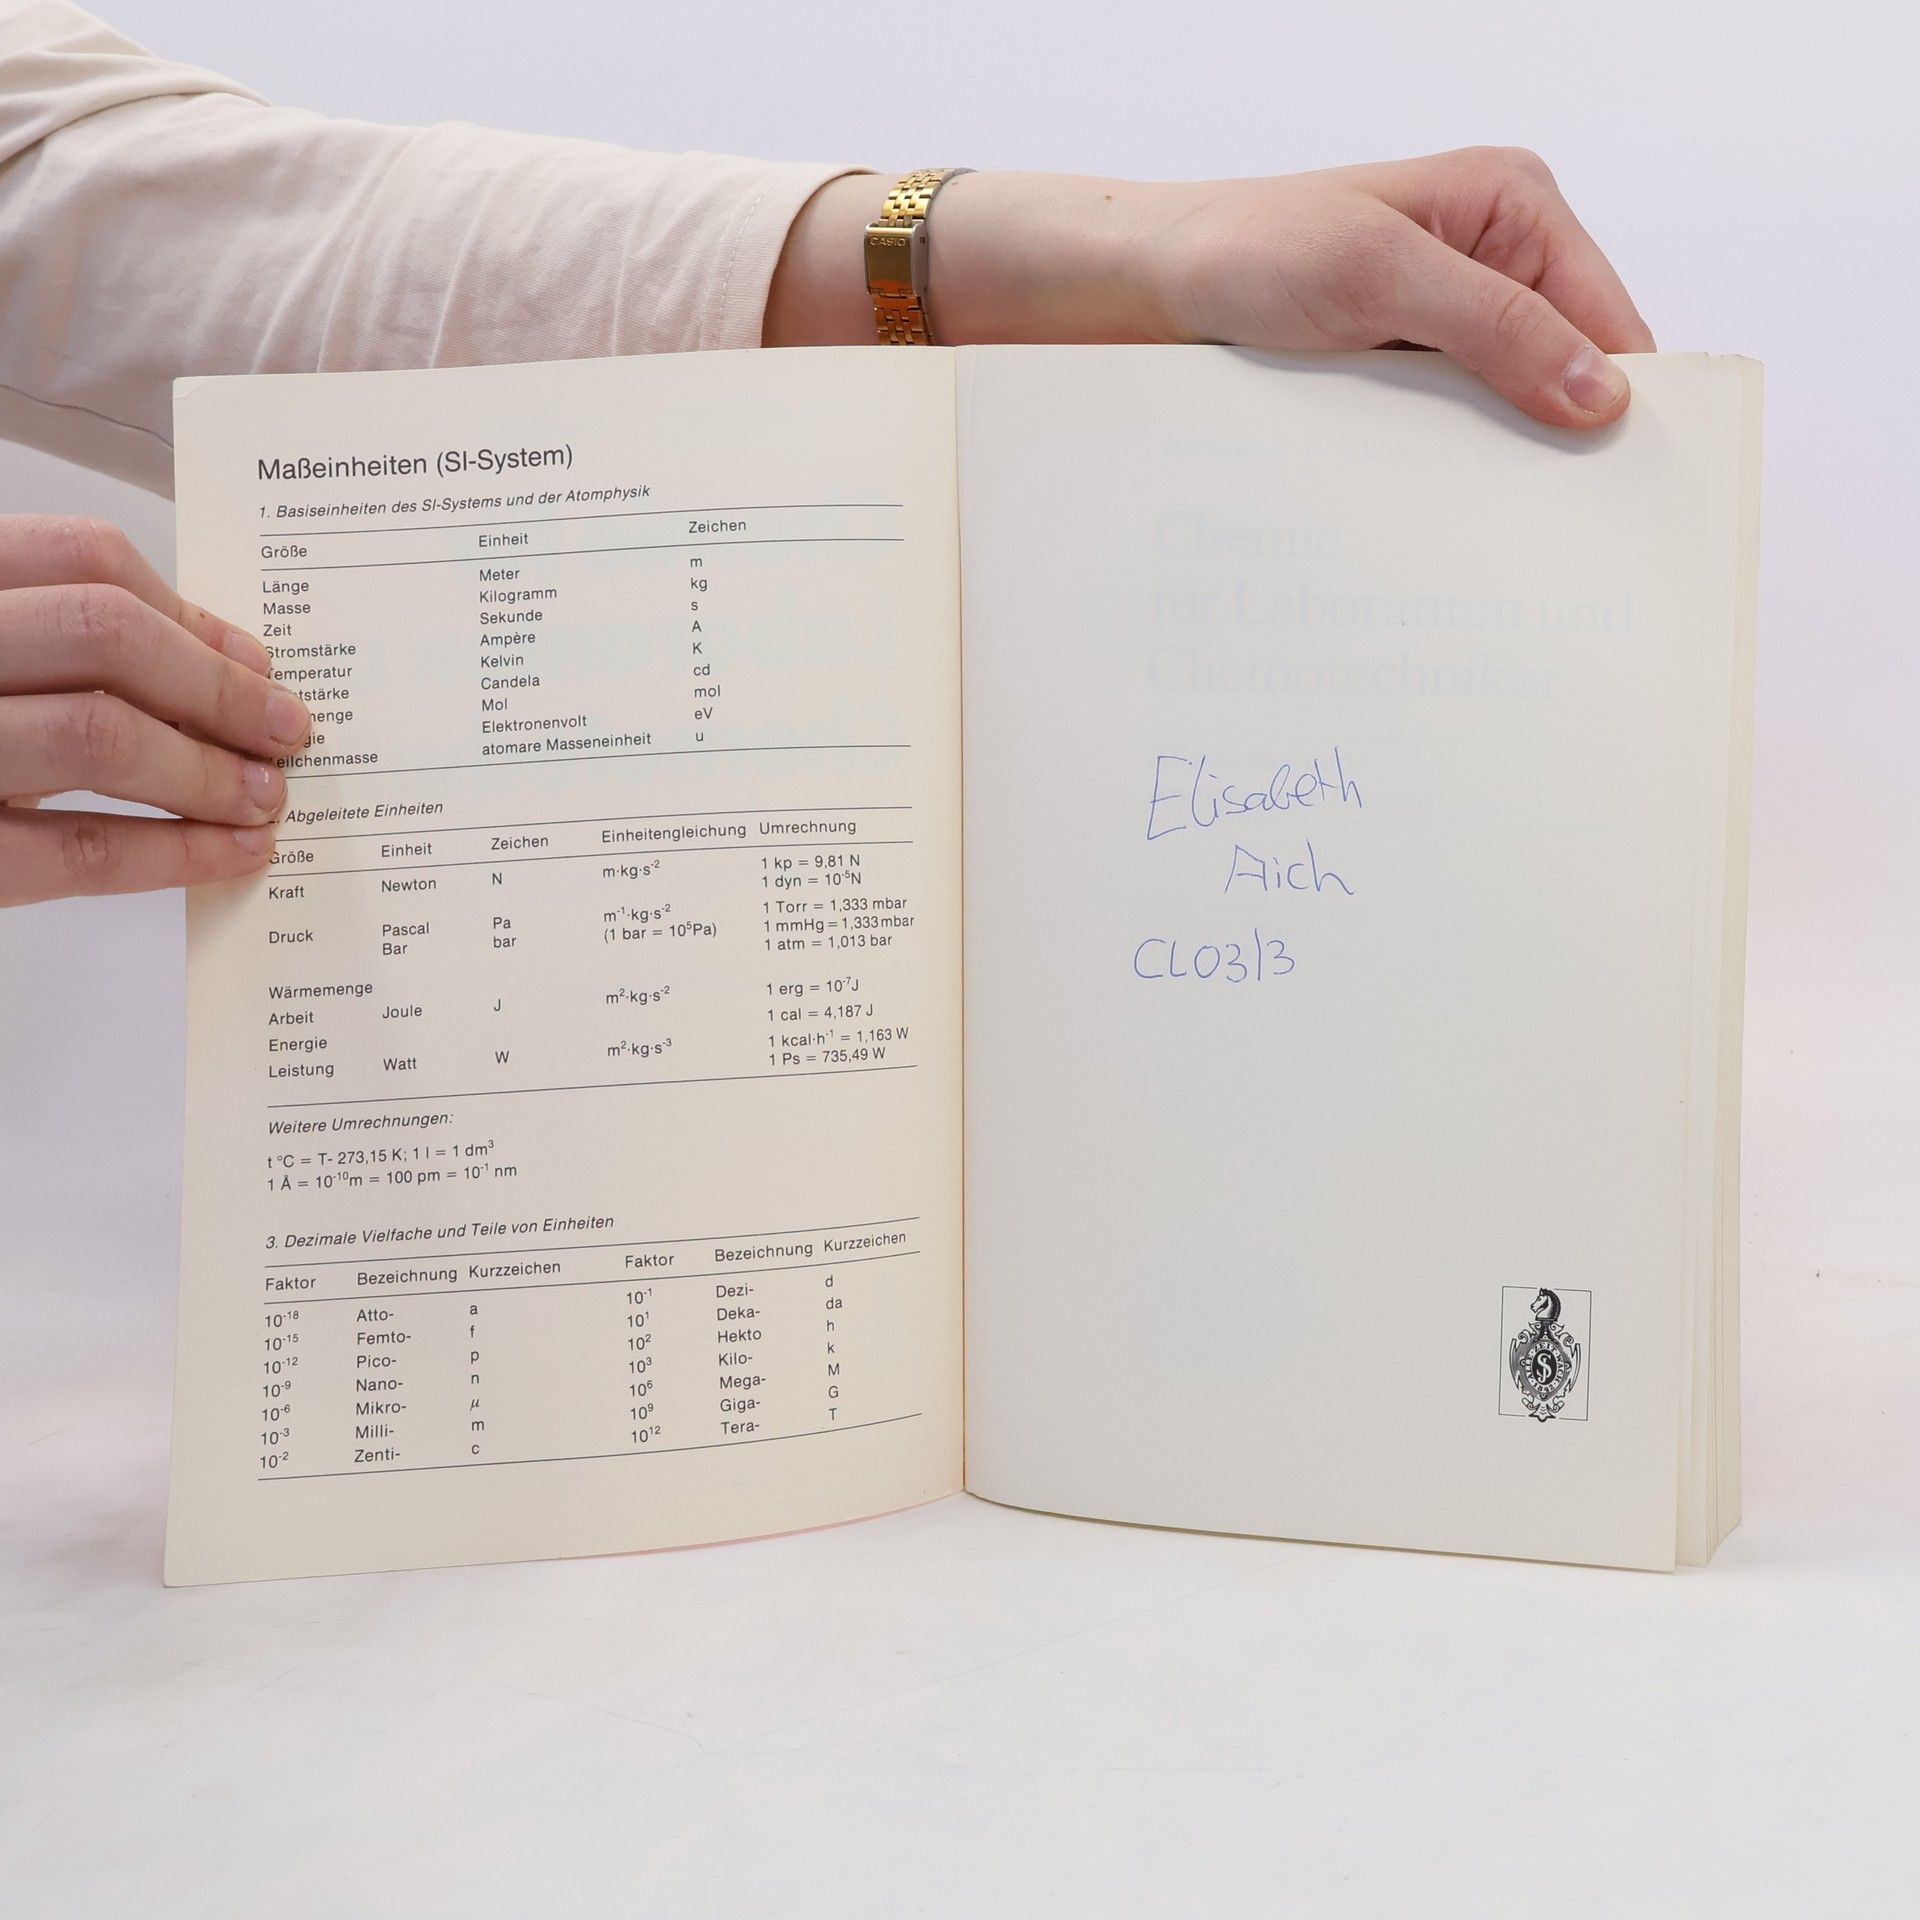 CASIO
Maßeinheiten (SI-System)
1. Basiseinheiten des SI-Systems und der Atomphysik
Größe Einheit Zeichen
Länge Meter m
Masse Kilogramm kg
Zeit Sekunde s
Stromstärke Ampère A
Temperatur Kelvin K
tstärke Candela cd
menge Mol mol
gie Elektronenvolt eV
eilchenmasse atomare Masseneinheit u
. Abgeleitete Einheiten
Größe Einheit Zeichen Einheitengleichung Umrechnung
Kraft Newton N m·kg·s⁻² 1 kp = 9,81 N
1 dyn = 10⁻⁵N
Druck Pascal Pa m⁻¹·kg·s⁻² 1 Torr = 1,333 mbar
Bar bar (1 bar = 10⁵Pa) 1 mmHg = 1,333 mbar
1 atm = 1,013 bar
Wärmemenge 1 erg = 10⁻⁷J
Arbeit Joule J m²·kg·s⁻² 1 cal = 4,187 J
Energie 1 kcal·h⁻¹ = 1,163 W
Leistung Watt W m²·kg·s⁻³ 1 Ps = 735,49 W
Weitere Umrechnungen:
t °C = T- 273,15 K; 1 l = 1 dm³
1 Å = 10⁻¹⁰m = 100 pm = 10⁻¹ nm
3. Dezimale Vielfache und Teile von Einheiten
Faktor Bezeichnung Kurzzeichen Faktor Bezeichnung Kurzzeichen
10⁻¹⁸ Atto- a 10⁻¹ Dezi- d
10⁻¹⁵ Femto- f 10¹ Deka- da
10⁻¹² Pico- p 10² Hekto h
10⁻⁹ Nano- n 10³ Kilo- k
10⁻⁶ Mikro- µ 10⁶ Mega- M
10⁻³ Milli- m 10⁹ Giga- G
10⁻² Zenti- c 10¹² Tera- T
Chemie
für Laboranten und
Chemotechniker
Elisabeth
Aich
CL03/3